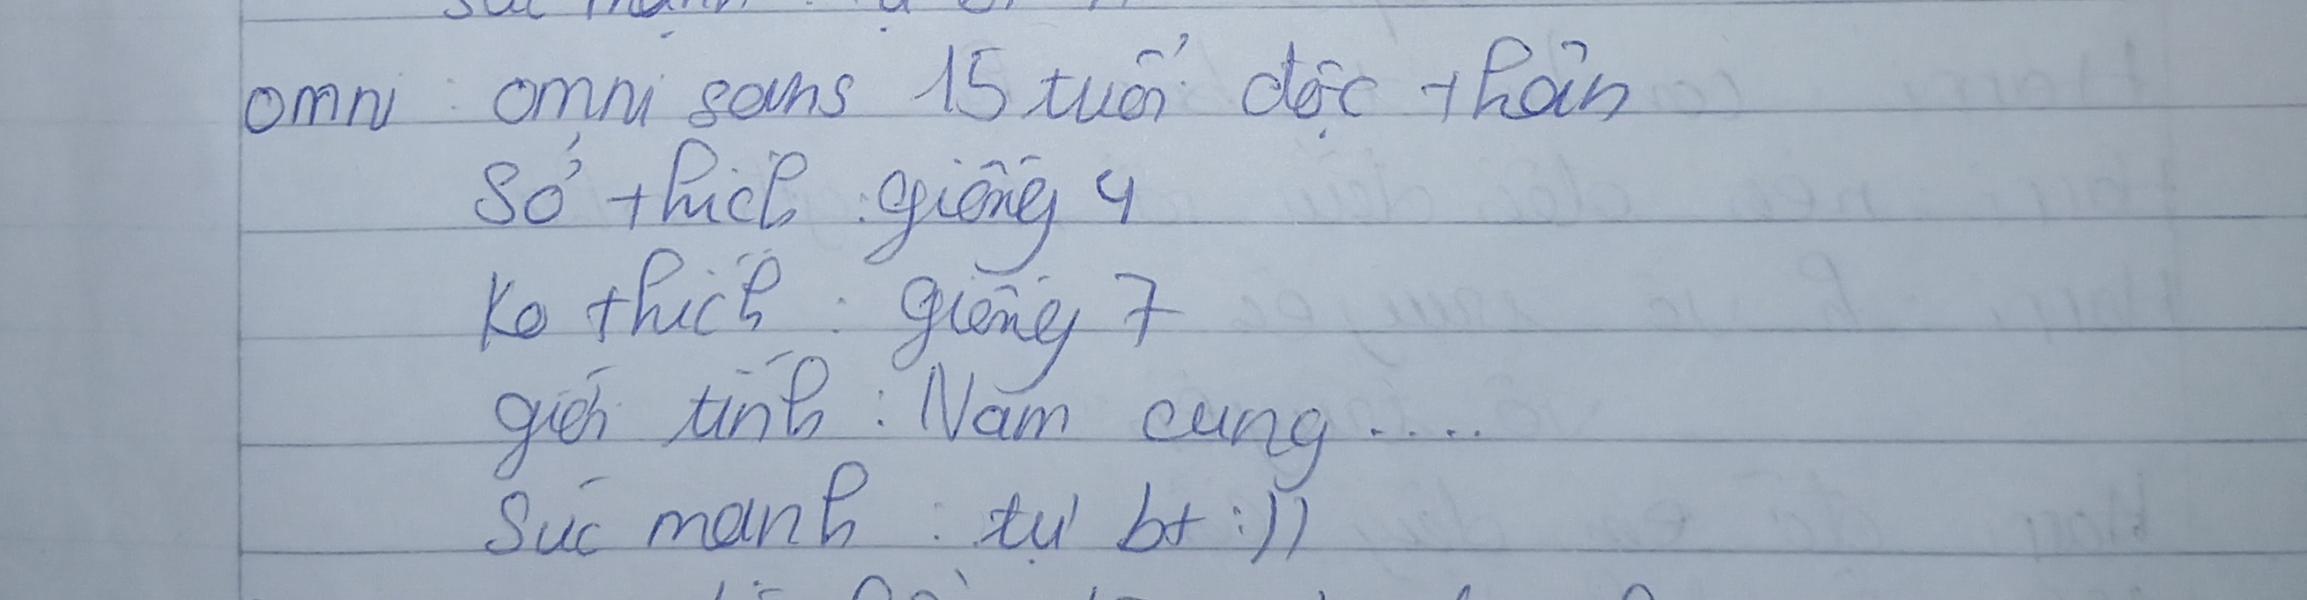 sức mạnh
omni : omni sans 15 tuổi độc thân
Sở thích : giống 4
Ko thích : giống 7
giới tính : Nam cung ....
Sức mạnh : tự bt :))